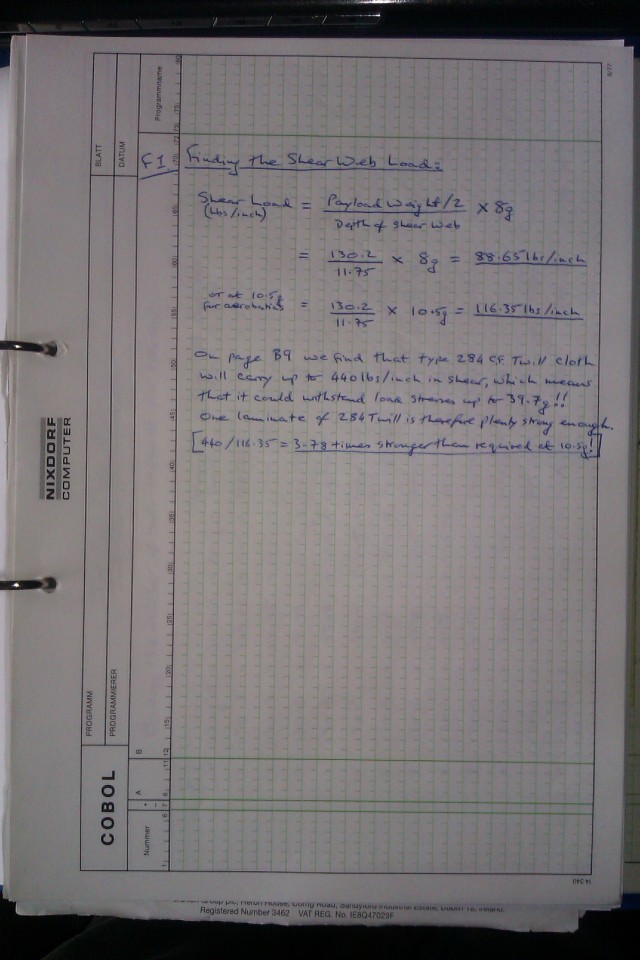 F1 Finding the Shear Web Load:
Shear Load = Payload Weight/2 × 8g
(Lbs/inch) Depth of Shear Web
= 130.2 × 8g = 88.65 lbs/inch
11.75
or at 10.5g = 130.2 × 10.5g = 116.35 lbs/inch
for aerobatics 11.75
On page B9 we find that type 284 C.F. Twill cloth
will carry up to 440 lbs/inch in shear, which means
that it could withstand load stresses up to 39.7g!!
One laminate of 284 Twill is therefore plenty strong enough.
[440/116.35 = 3.78 times stronger than required at 10.5g!]
COBOL
PROGRAMM
PROGRAMMIERER
BLATT
DATUM
NIXDORF
COMPUTER
Nummer
A
B
Programmname
8/77
14 340
Registered Number 3462 VAT REG. No. IE8Q47029F